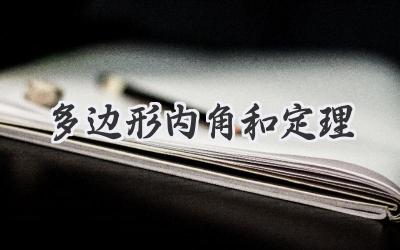 多边形内角和定理